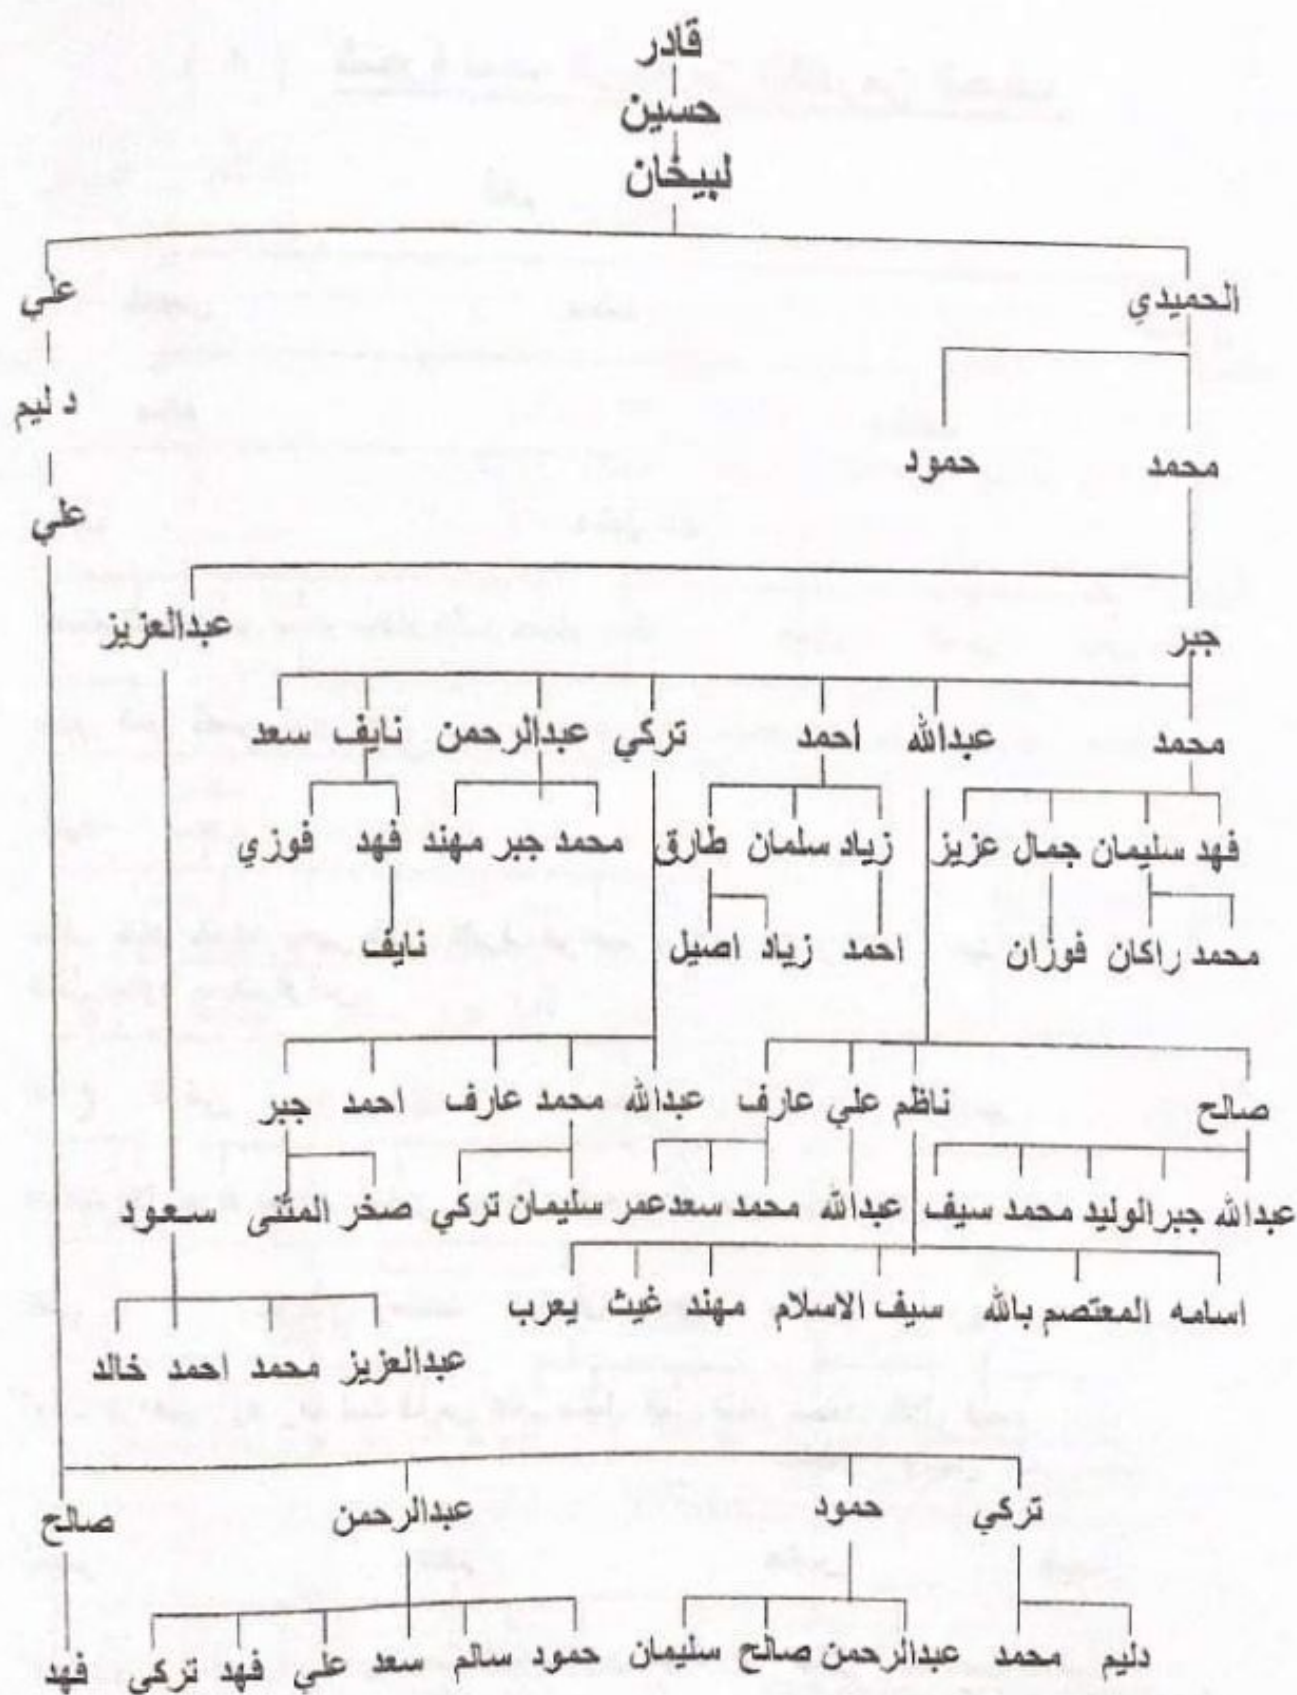 قادر
حسين
لبيخان
الحميدي علي
دليم
محمد حمود
علي
جبر عبدالعزيز
محمد عبدالله احمد تركي عبدالرحمن نايف سعد
فهد سليمان جمال عزيز زياد سلمان طارق محمد جبر مهند فهد فوزي
محمد راكان فوزان احمد زياد اصيل نايف
صالح ناظم علي عارف عبدالله محمد عارف احمد جبر
عبدالله جبر الوليد محمد سيف عبدالله محمد سعد عمر سليمان تركي صخر المثنى سعود
اسامه المعتصم بالله سيف الاسلام مهند غيث يعرب
عبدالعزيز محمد احمد خالد
تركي حمود عبدالرحمن صالح
دليم محمد عبدالرحمن صالح سليمان حمود سالم سعد علي فهد تركي فهد